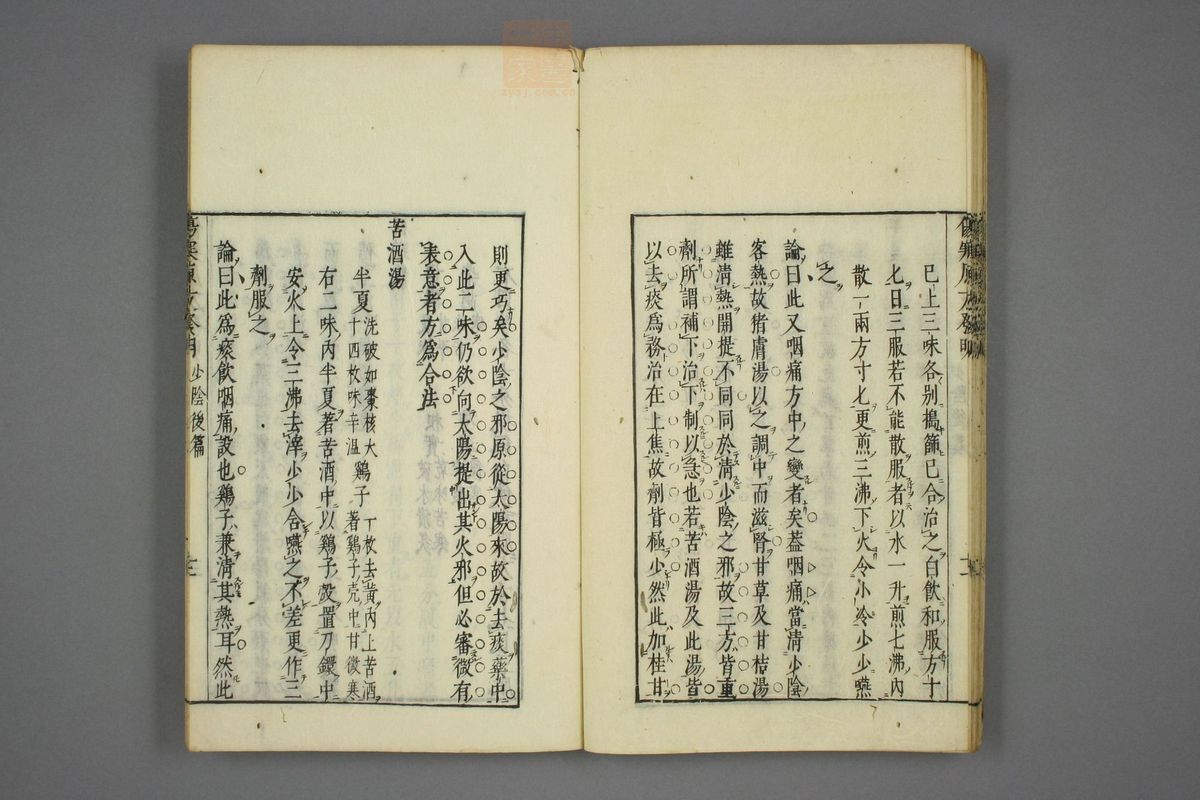 已上三味各別搗篩已合治之白飲和服方寸
匕日三服若不能散服者以水一升煎七沸內
散一兩方寸匕更煎三沸下火令小冷少少嚥
之
論曰此又咽痛方中之變者矣蓋咽痛當清少陰
客熱故猪膚湯以之調中而滋腎甘草及甘桔湯
雖清熱開提不同同於清少陰之邪故三方皆重
劑所謂補下治下制以急也若苦酒湯及此湯皆
以去痰爲務治在上焦故劑皆極少然此加桂甘
則更巧矣少陰之邪原從太陽來故於去痰藥中
入此二味仍欲向太陽提出其火邪但必審微有
表意者方爲合法
苦酒湯
半夏洗破如棗核大十四枚味辛溫 鷄子一枚去黃內上苦酒著鷄子壳中甘微寒
右二味內半夏著苦酒中以鷄子殼置刀鐶中
安火上令三沸去滓少少含嚥之不差更作三
劑服之
論曰此爲痰飲咽痛設也鷄子兼清其熱耳然此
少陰後篇
zysj.com.cn